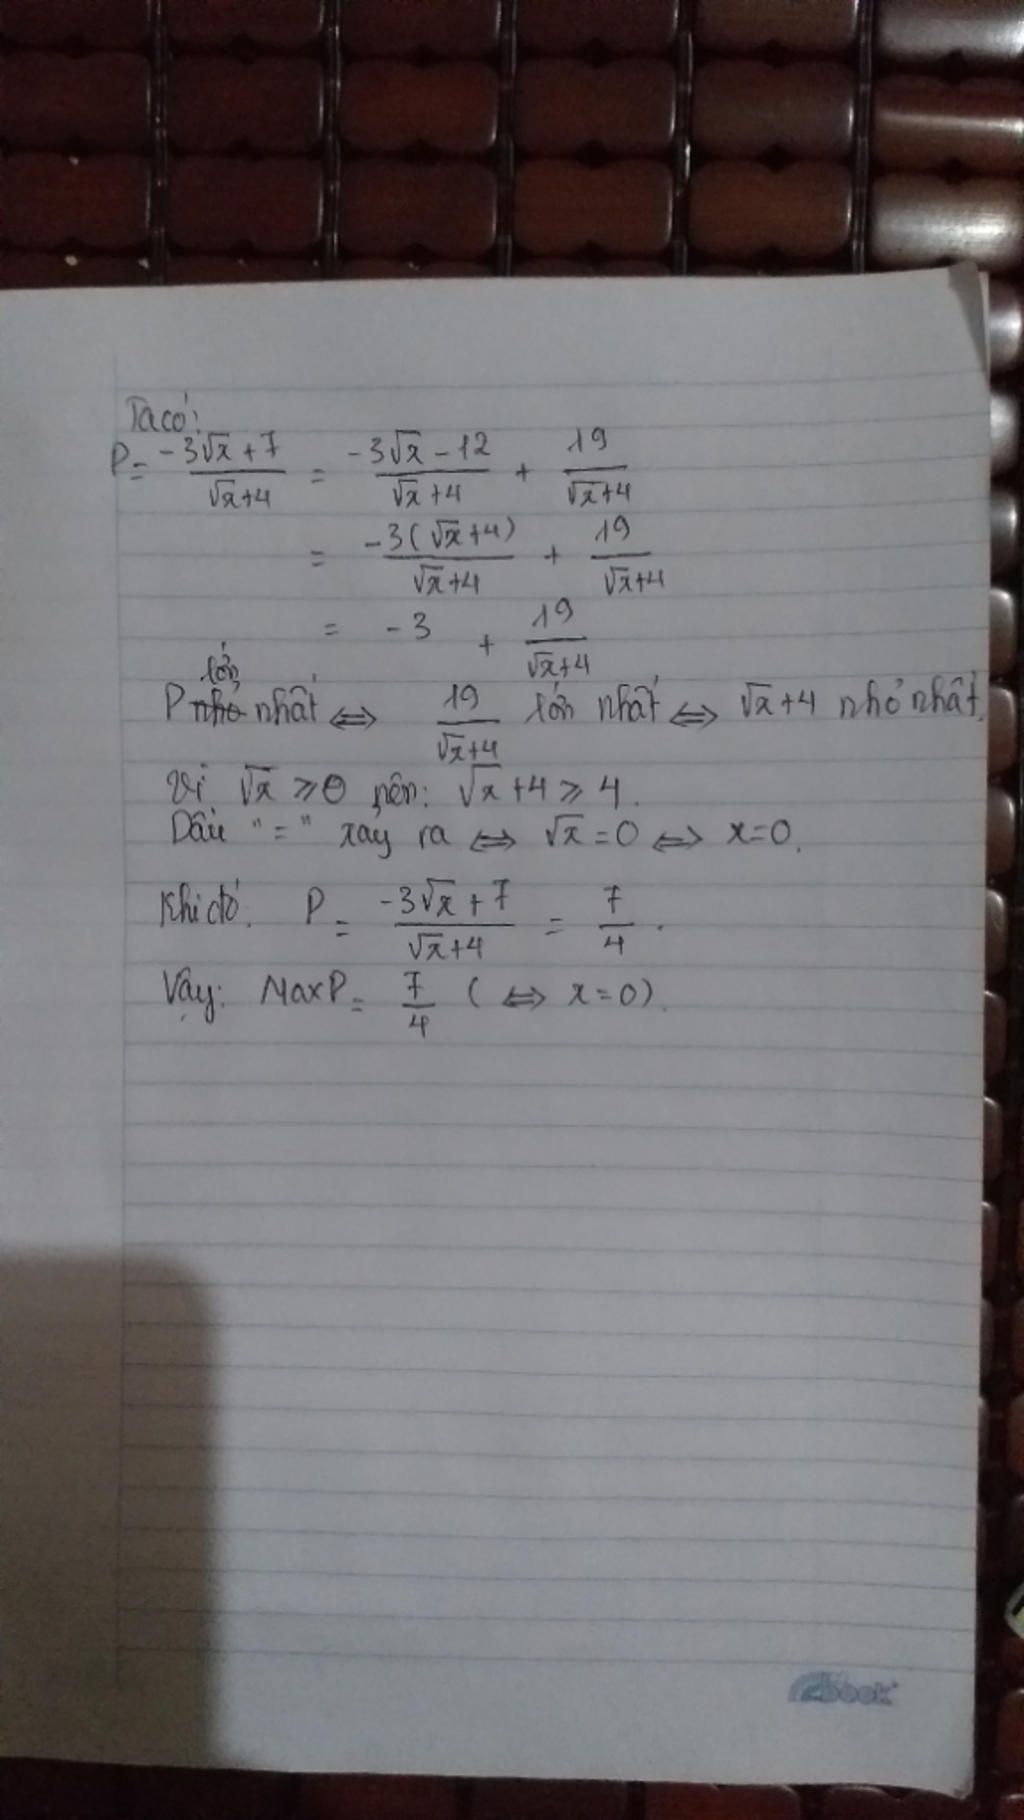 Ta có:
P = (-3√x + 7)/(√x+4) = (-3√x - 12)/(√x+4) + 19/(√x+4)
= -3(√x+4)/(√x+4) + 19/(√x+4)
= -3 + 19/(√x+4)
lớn
P nhỏ nhất ⇔ 19/(√x+4) lớn nhất ⇔ √x+4 nhỏ nhất.
Vì √x ⩾ 0 nên: √x +4 ⩾ 4.
Dấu "=" xảy ra ⇔ √x = 0 ⇔ x=0.
Khi đó: P = (-3√x + 7)/(√x+4) = 7/4.
Vậy: MaxP = 7/4 (⇔ x=0).
book